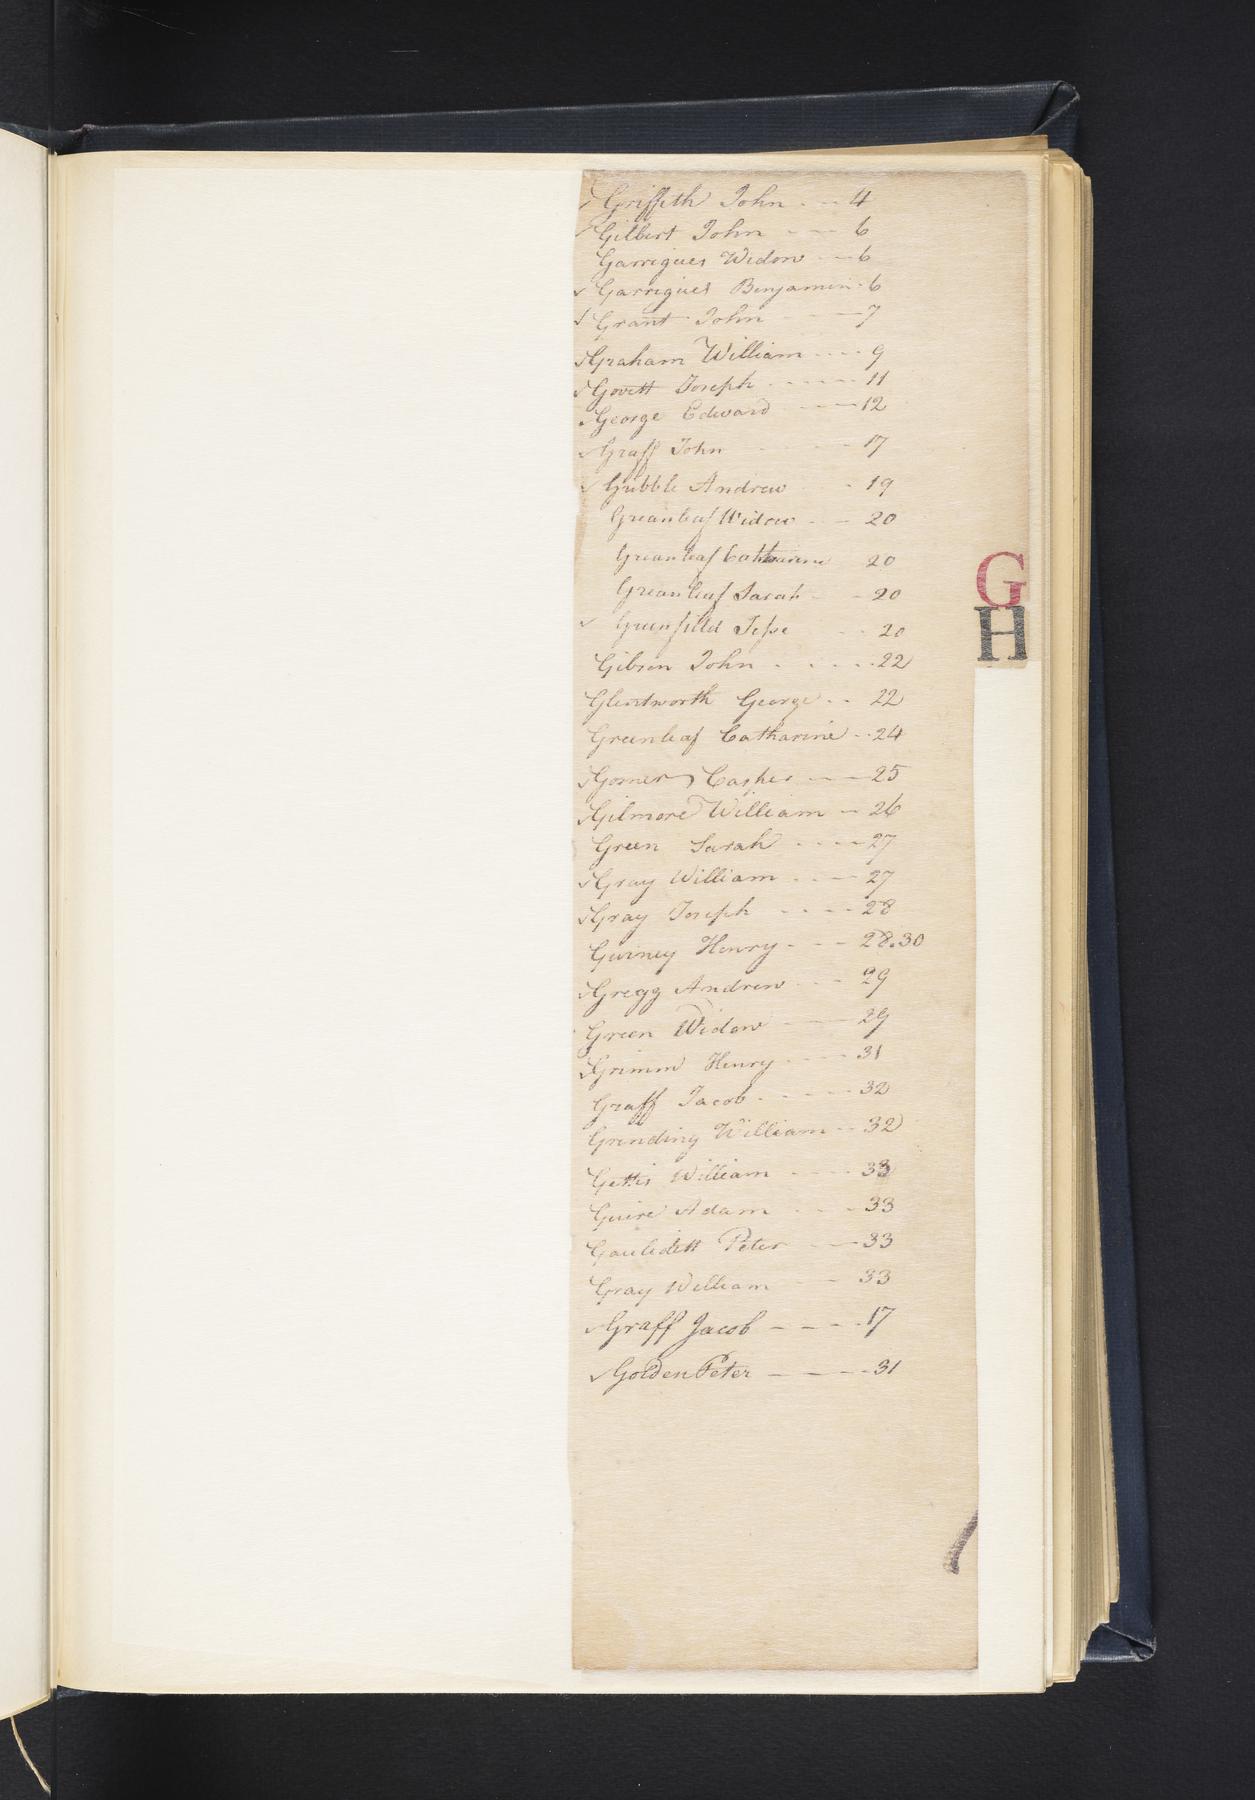 Griffith John - - 4
Gilbert John - - 6
Garrigues Widow - - 6
Garrigues Benjamin - 6
Grant John - - 7
Graham William - - - - 9
Govett Joseph - - - - - 11
George Edward - - 12
Graff John - - 17
Gubble Andrew - 19
Greanleaf Widow - - 20
Greanleaf Catharine 20
Greanleaf Sarah - - 20
Greenfield Jesse - - 20
Gibson John - - - - - 22
Glentworth George - - 22
Greenleaf Catharine - - 24
Gomer Casper - - 25
Gilmore William - 26
Green Sarah - - - - 27
Gray William - - - 27
Gray Joseph - - - - 28
Gurney Henry - - - 28.30
Gregg Andrew - - - 29
Green Widow - - 29
Grimm Henry - - - - 31
Graff Jacob - - - - - 32
Grinding William - - 32
Gettis William - - - - 33
Guire Adam - - - 33
Peter - - 33
Gray William - - 33
Graff Jacob - - - - 17
Golden Peter - - - - 31
G
H